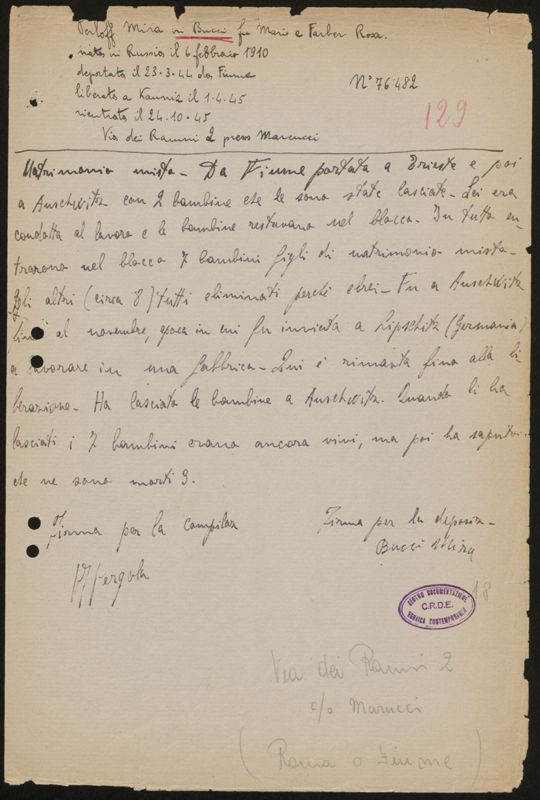 Perloff Mira in Bucci fu Mario e Farber Rosa.
nata in Russia il 6 febbraio 1910
deportata il 23-3-44 da Fiume
liberata a il 1-4-45
rientrata il 24-10-45
Via dei Ramni 2 presso Marcucci
N° 76482
129
Matrimonio misto - Da Fiume portata a Trieste e poi
a Auschwitz con 2 bambine che le sono state lasciate - Lei era
condotta al lavoro e le bambine restavano nel blocco - In tutto en
trarono nel blocco 7 bambini figli di matrimonio misto -
Gli altri (circa 8) tutti eliminati perché ebrei - Fu a Auschwitz
fino al novembre, epoca in cui fu inviata a Lipschitz (Germania)
a lavorare in una fabbrica - Qui è rimasta fino alla li
berazione - Ha lasciato le bambine a Auschwitz. Quando li ha
lasciati i 7 bambini erano ancora vivi, ma poi ha saputo
che ne sono morti 3.
Firma per la compilaz
Firma per la deposiz -
Bucci Mira
CENTRO DOCUMENTAZIONE
C.R.D.E.
EBRAICA CONTEMPORANEA
18
Via dei Ramni 2
c/o Marcucci
(Roma o Fiume)